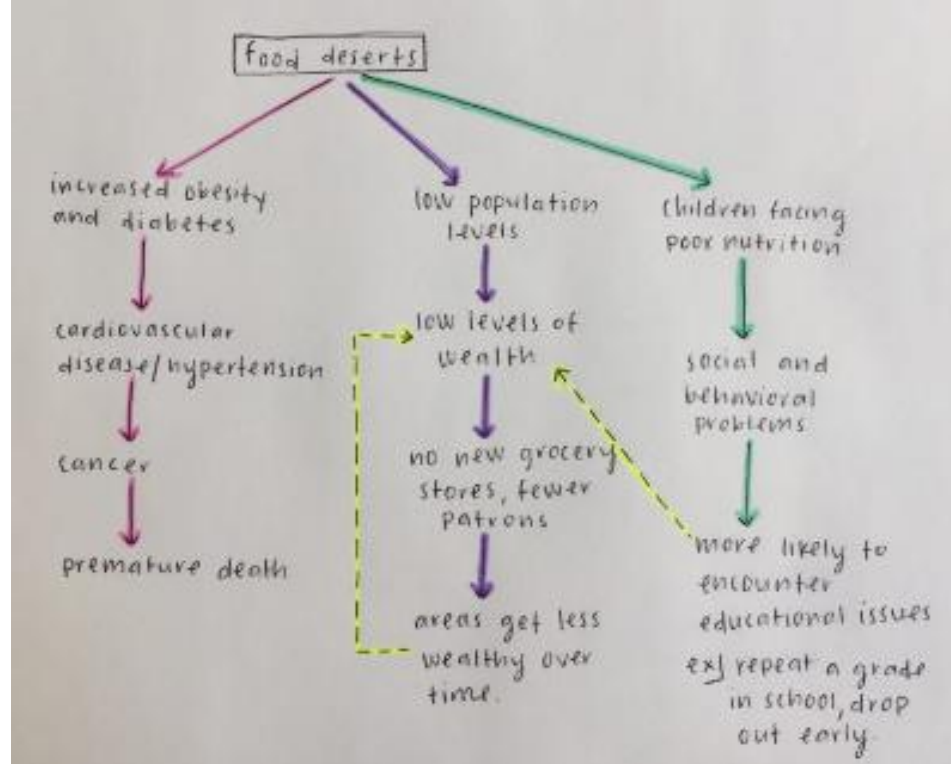 food deserts
increased obesity
and diabetes
cardiovascular
disease/hypertension
cancer
premature death
low population
levels
low levels of
wealth
no new grocery
stores, fewer
patrons
areas get less
wealthy over
time.
children facing
poor nutrition
social and
behavioral
problems
more likely to
encounter
educational issues
ex] repeat a grade
in school, drop
out early.